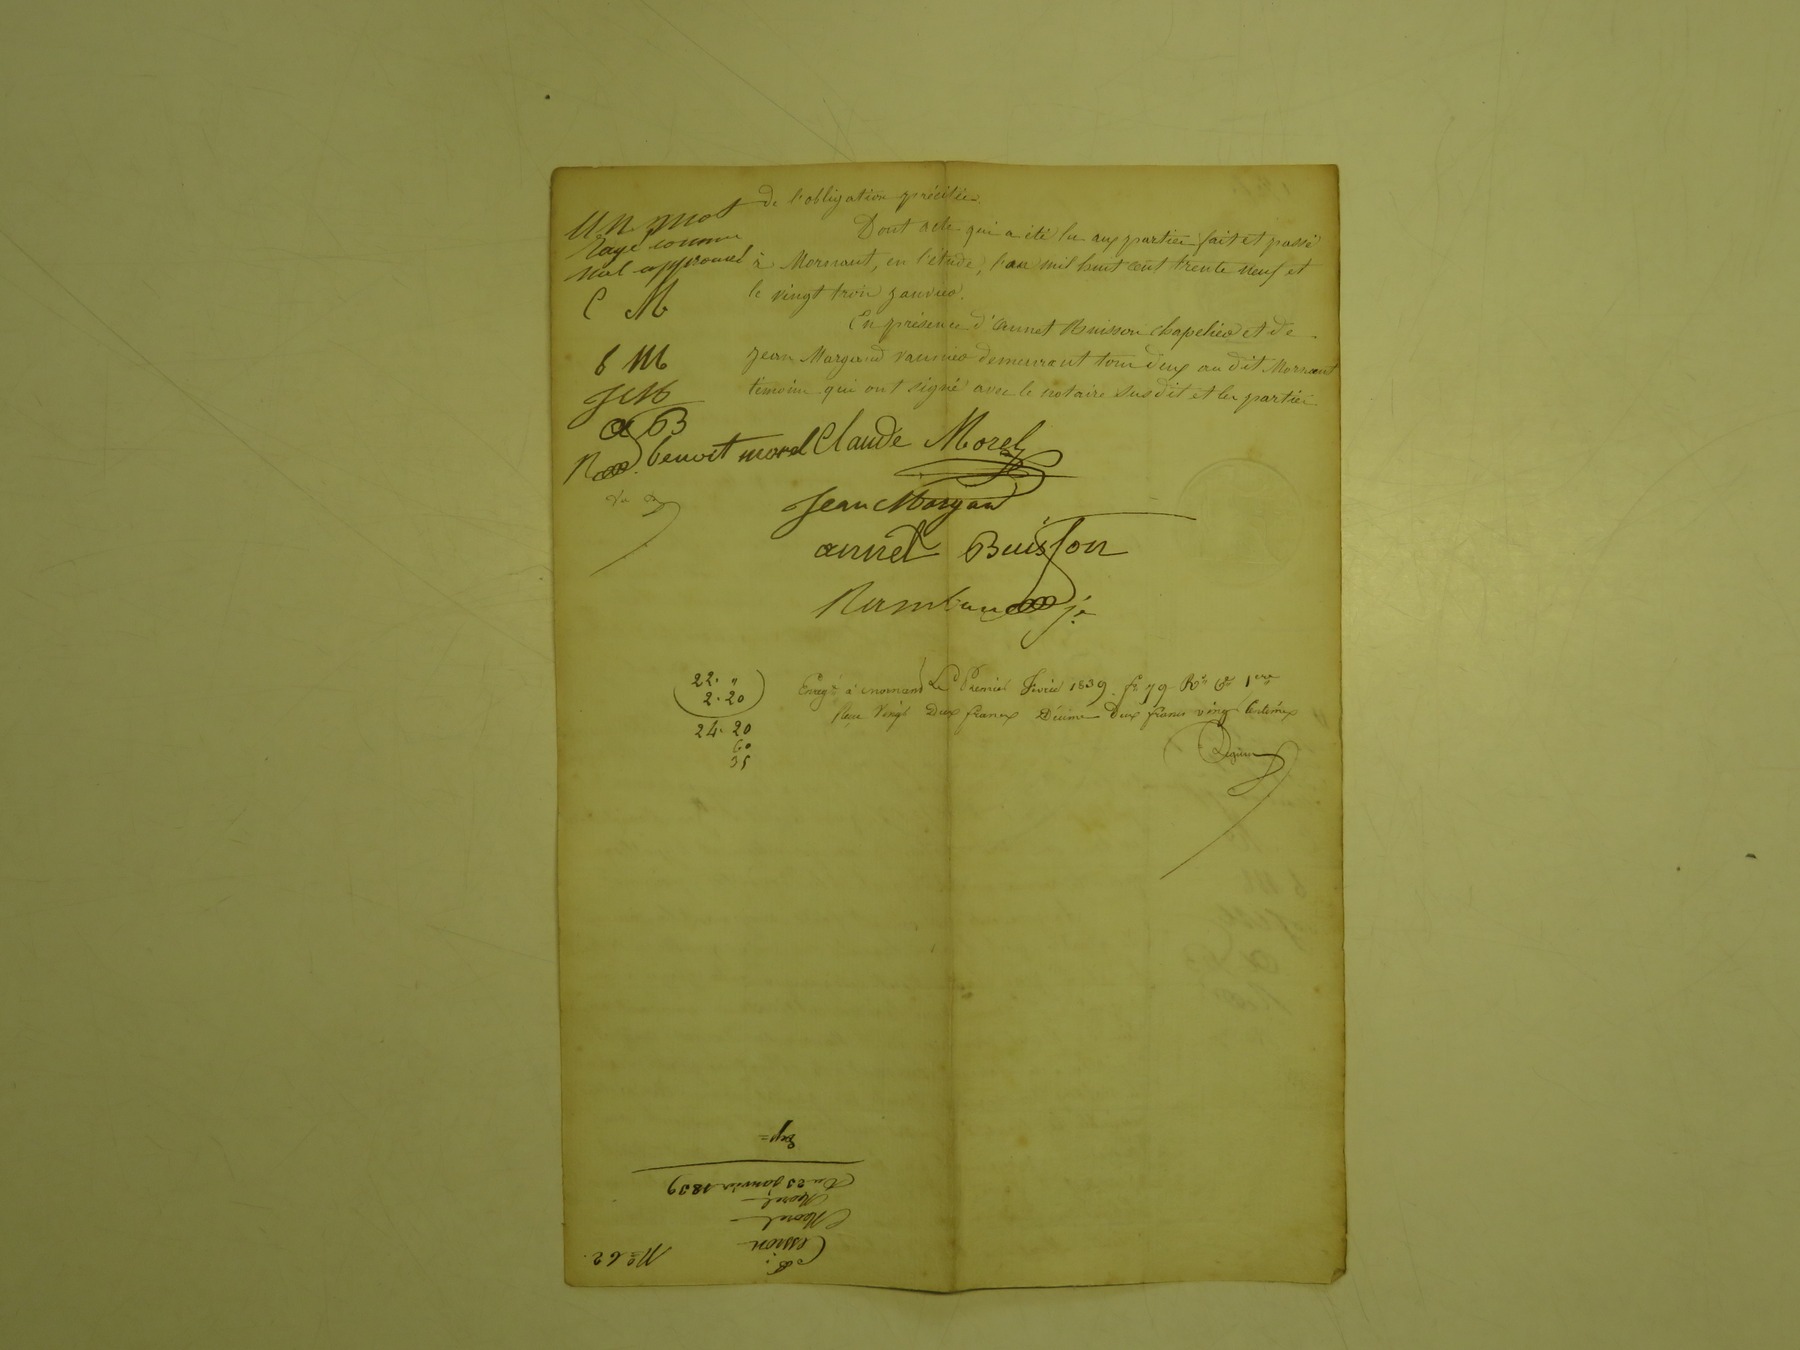 de l'obligation précitée.
Dont acte qui a été lu aux parties fait et passé
à Mornant, en l'étude, l'an mil huit cent trente neuf et
le vingt trois janvier.
En présence d'annet Buisson chapelier et de
Jean Margand vannier demeurant tous deux au dit Mornant
témoins qui ont signé avec le notaire susdit et les parties
un mot
rayé comme
nul approuvé
C M
b M
JM
a B
R
benoit morel Claude Morel
Jean Margan
annet Buisson
22. "
2. 20
24. 20
60
35
Enregé à mornant Le Premier Février 1839. fo 79 Ro Ce 1ere
Reçu Vingt Deux francs Décime Deux francs vingt Centimes
No 62.
Cession
Morel
Morel
Du 23 janvier 1839
Exp=